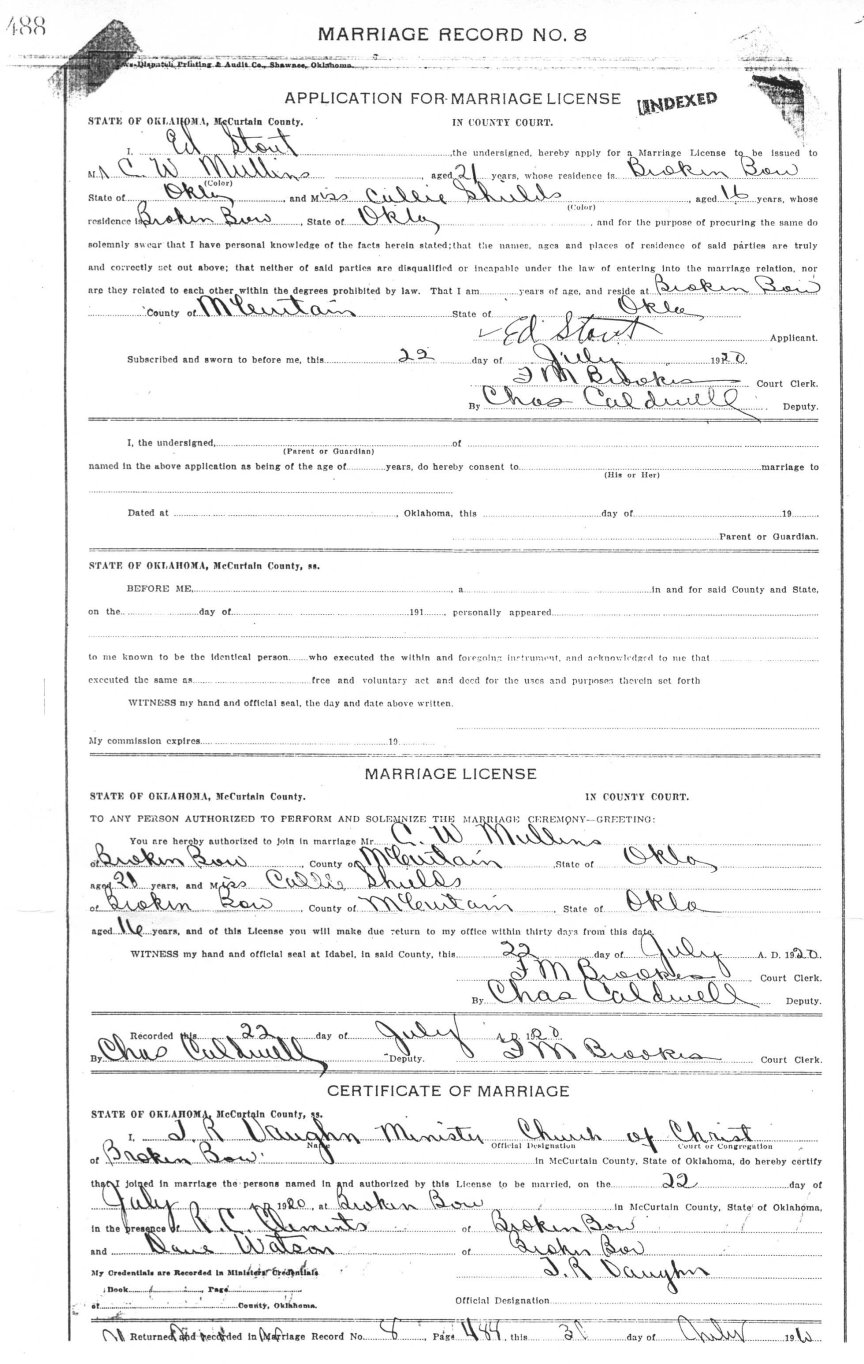 488
MARRIAGE RECORD NO. 8
-Dispatch Printing & Audit Co., Shawnee, Oklahoma.
APPLICATION FOR MARRIAGE LICENSE INDEXED
STATE OF OKLAHOMA, McCurtain County. IN COUNTY COURT.
I, Ed Stout, the undersigned, hereby apply for a Marriage License to be issued to
Mr C. W Mullins aged 21 years, whose residence is Broken Bow
(Color)
State of Okla, and Miss Callie Shields, aged 16 years, whose
(Color)
residence is Broken Bow, State of Okla, and for the purpose of procuring the same do
solemnly swear that I have personal knowledge of the facts herein stated; that the names, ages and places of residence of said parties are truly
and correctly set out above; that neither of said parties are disqualified or incapable under the law of entering into the marriage relation, nor
are they related to each other within the degrees prohibited by law. That I am years of age, and reside at Broken Bow
County of McCurtain State of Okla
Ed Stout Applicant.
Subscribed and sworn to before me, this 22 day of July 1920.
F M Brookes Court Clerk.
By Chas Caldwell Deputy.
I, the undersigned, of
(Parent or Guardian)
named in the above application as being of the age of years, do hereby consent to marriage to
(His or Her)
Dated at , Oklahoma, this day of 19
Parent or Guardian.
STATE OF OKLAHOMA, McCurtain County, ss.
BEFORE ME, , a in and for said County and State,
on the day of 191 , personally appeared
to me known to be the identical person who executed the within and foregoing instrument, and acknowledged to me that
executed the same as free and voluntary act and deed for the uses and purposes therein set forth
WITNESS my hand and official seal, the day and date above written.
My commission expires 19
MARRIAGE LICENSE
STATE OF OKLAHOMA, McCurtain County. IN COUNTY COURT.
TO ANY PERSON AUTHORIZED TO PERFORM AND SOLEMNIZE THE MARRIAGE CEREMONY—GREETING:
You are hereby authorized to join in marriage Mr. C. W Mullins
of Broken Bow County of McCurtain State of Okla
aged 21 years, and Miss Callie Shields
of Broken Bow County of McCurtain State of Okla
aged 16 years, and of this License you will make due return to my office within thirty days from this date.
WITNESS my hand and official seal at Idabel, in said County, this 22 day of July A. D. 1920.
F M Brookes Court Clerk.
By Chas Caldwell Deputy.
Recorded this 22 day of July A. D. 1920
By Chas Caldwell Deputy. F M Brookes Court Clerk.
CERTIFICATE OF MARRIAGE
STATE OF OKLAHOMA, McCurtain County, ss.
I, J. R Vaughn Minister Church of Christ
Name Official Designation Court or Congregation
of Broken Bow in McCurtain County, State of Oklahoma, do hereby certify
that I joined in marriage the persons named in and authorized by this License to be married, on the 22 day of
July 1920, at Broken Bow in McCurtain County, State of Oklahoma,
in the presence of R. C. Clements of Broken Bow
and Dave Watson of Broken Bow
My Credentials are Recorded in Ministers' Credentials J. R Vaughn
Book Page
of County, Oklahoma. Official Designation
Returned and recorded in Marriage Record No. 8, Page 488, this day of July 19